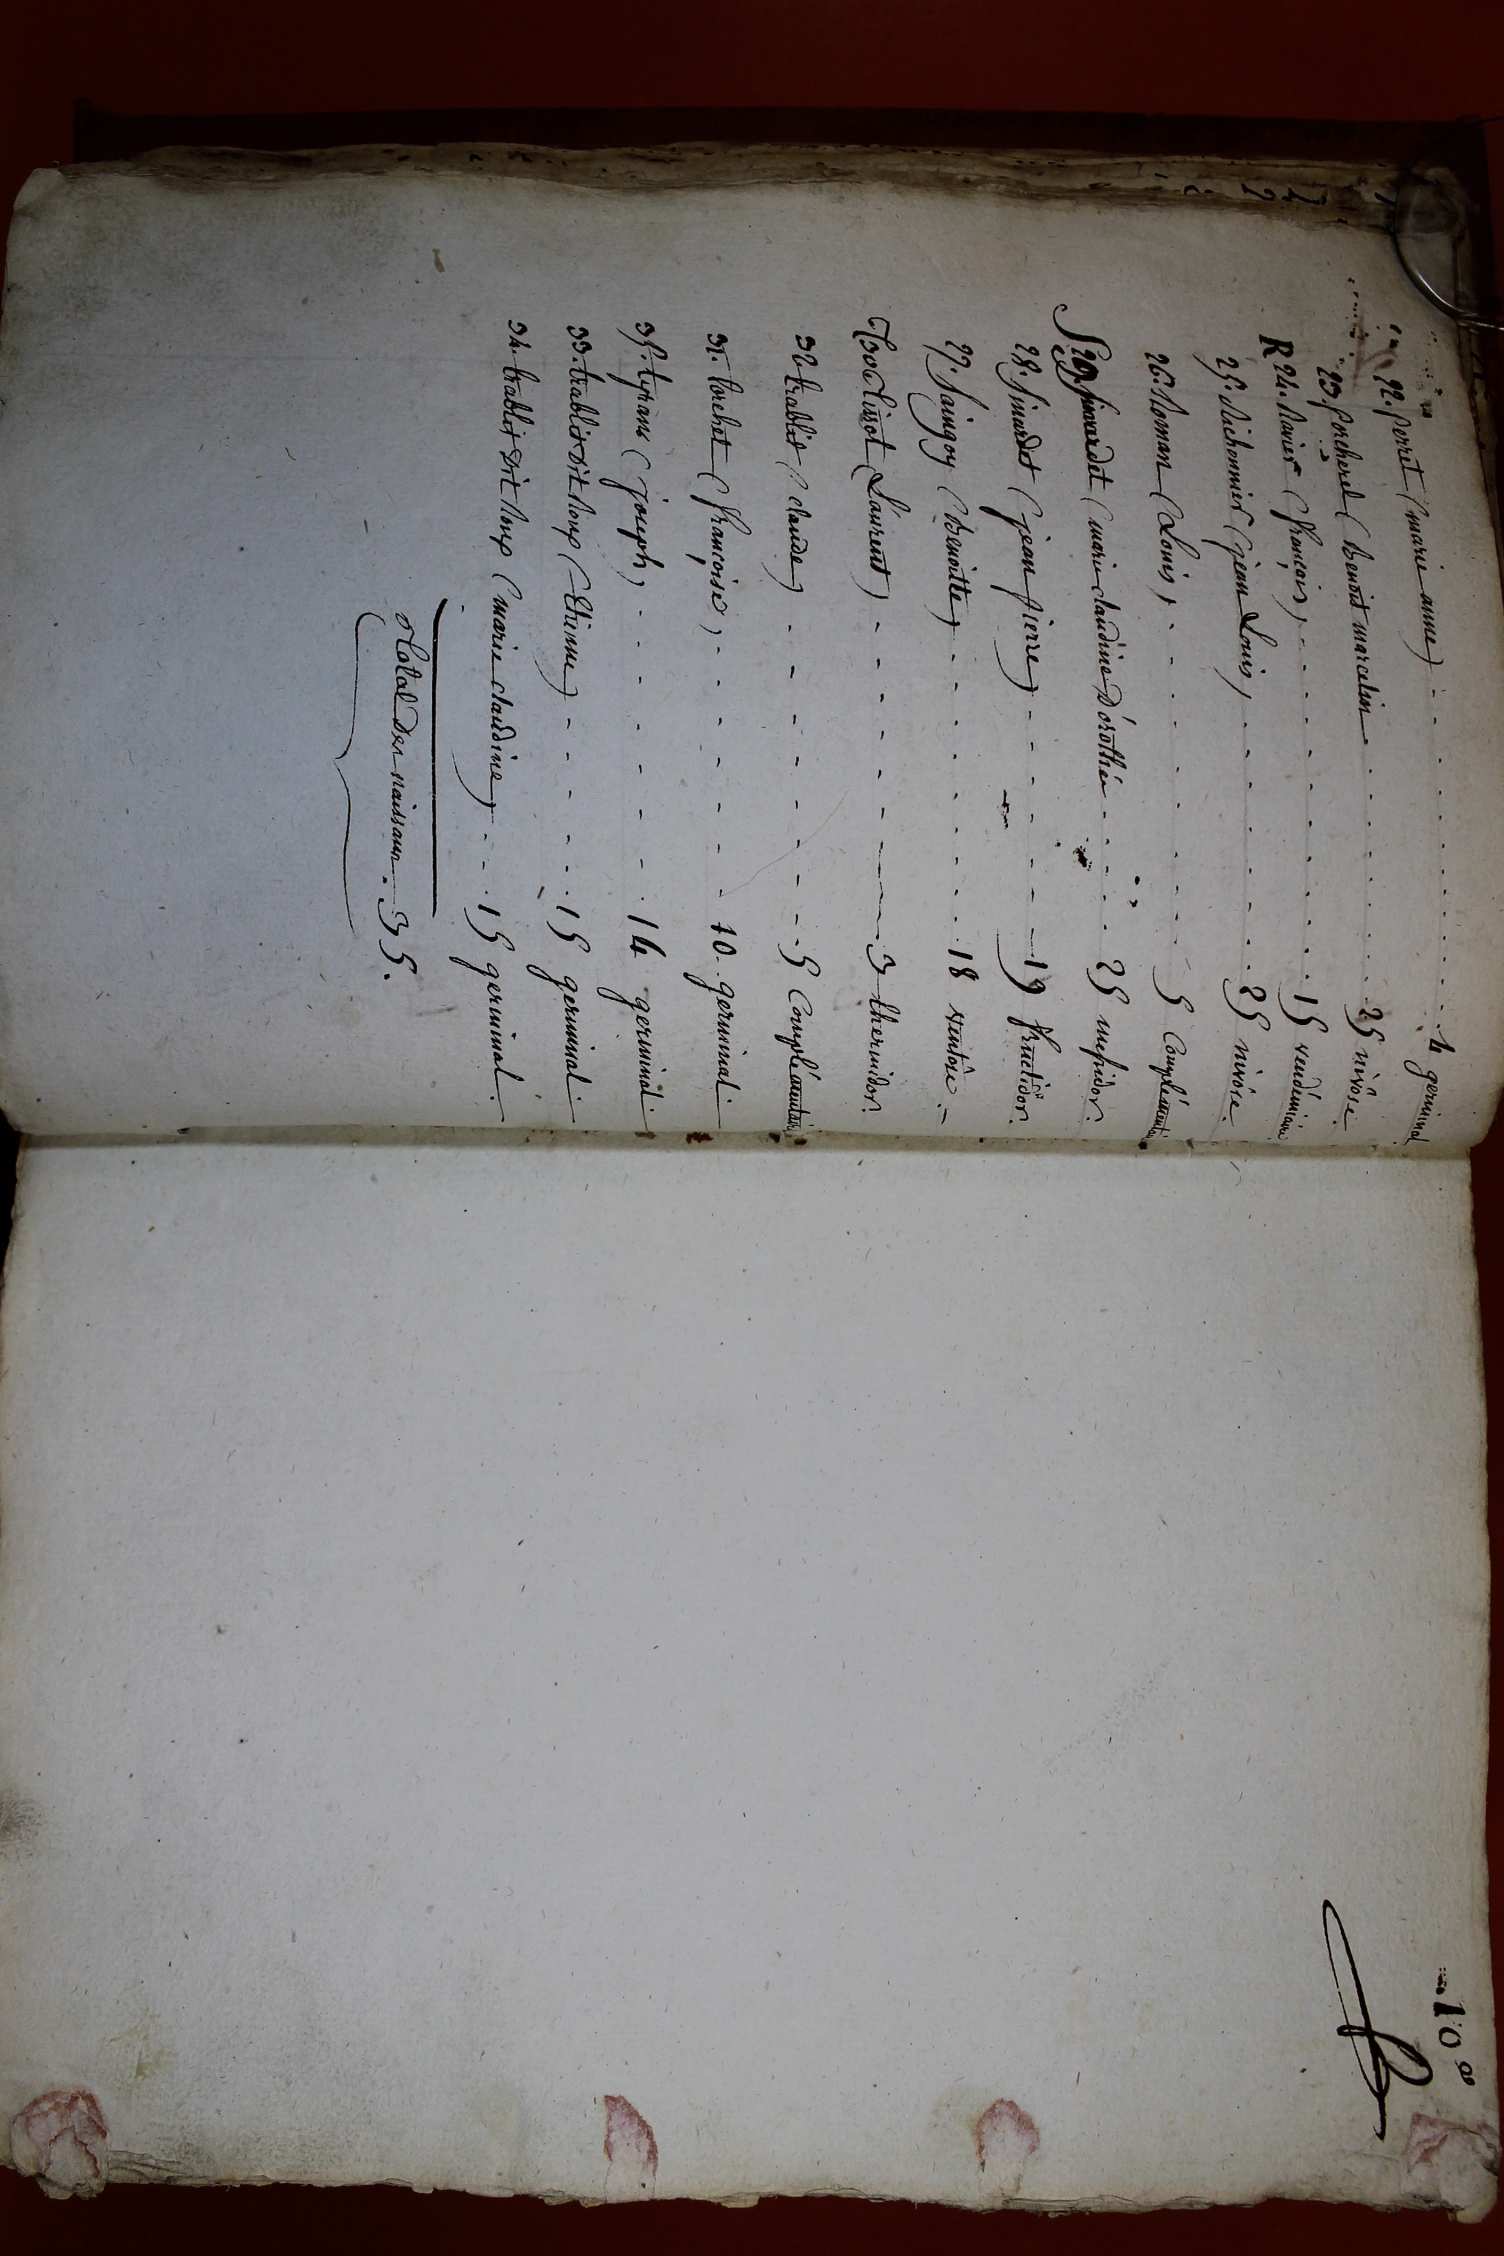 22. perret (marie anne) - - - - - - - 4 germinal
23. porcherel (Benoit marcelin - - - - - - - 25 nivôse
R 24. Ravier (françois) - - - - - - - 15 vendémiaire
25. Richomier (jean Louis) - - - - - - - 25 nivôse
26. Roman (Louis) - - - - - - - 5 Complémentaire
S 29. Simardet (marie claudine Dorothée - - - - 25 messidor.
28. Simardet (jean pierre) - - - - - - 19 fructidor.
27. Saingoy (Benoitte) - - - - - - - 18 ventôse. -
T 30 Tissot (Laurent) - - - - - - - 3 thermidor.
32 trablit (Claude) - - - - - - - 5 Complémentaire
31. torchet (françoise) - - - - - - - 10 germinal
35. tyrans (joseph) - - - - - - - 14 germinal
33. trablit dit Roux (Etienne) - - - - - 15 germinal
34. trablit dit Roux (marie claudine) - - - 15 germinal.
Total des naissances. 35.
10e